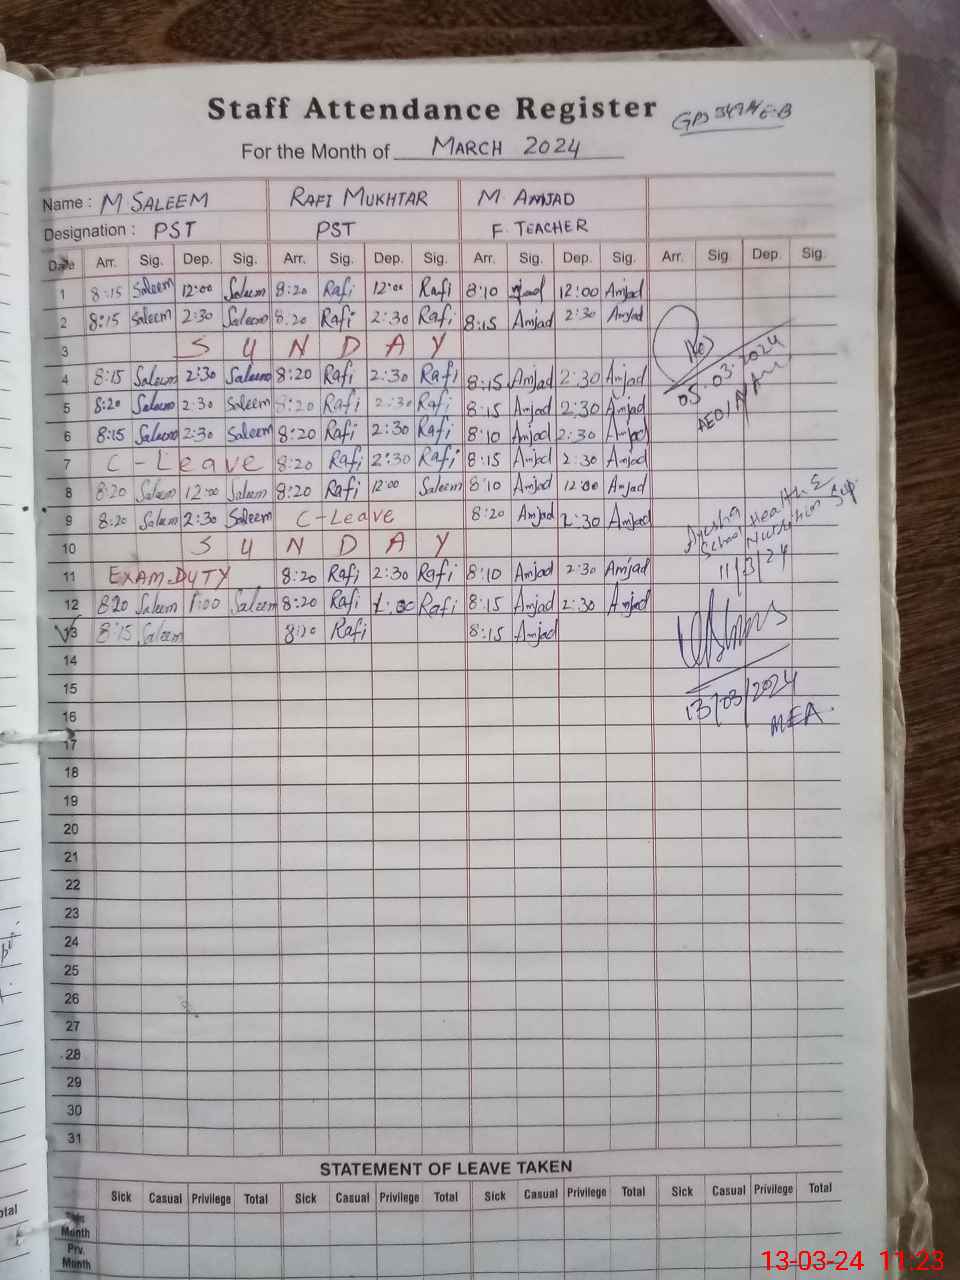 Staff Attendance Register
For the Month of MARCH 2024
Name : M SALEEM RAFI MUKHTAR M. AMJAD
Designation : PST PST F. TEACHER
Date Arr. Sig. Dep. Sig. Arr. Sig. Dep. Sig. Arr. Sig. Dep. Sig. Arr. Sig. Dep. Sig.
1 8:15 Saleem 12:00 Saleem 8:20 Rafi 12:00 Rafi 8:10 12:00 Amjad
2 8:15 Saleem 2:30 Saleem 8:20 Rafi 2:30 Rafi 8:15 Amjad 2:30 Amjad
3 SUNDAY
4 8:15 Saleem 2:30 Saleem 8:20 Rafi 2:30 Rafi 8:15 Amjad 2:30 Amjad
5 8:20 Saleem 2:30 Saleem 8:20 Rafi 2:30 Rafi 8:15 Amjad 2:30 Amjad
6 8:15 Saleem 2:30 Saleem 8:20 Rafi 2:30 Rafi 8:10 Amjad 2:30 Amjad
7 C-Leave 8:20 Rafi 2:30 Rafi 8:15 Amjad 2:30 Amjad
8 8:20 Saleem 12:00 Saleem 8:20 Rafi 12:00 Saleem 8:10 Amjad 12:00 Amjad
9 8:20 Saleem 2:30 Saleem C-Leave 8:20 Amjad 2:30 Amjad
10 SUNDAY
11 EXAM.DUTY 8:20 Rafi 2:30 Rafi 8:10 Amjad 2:30 Amjad
12 8:20 Saleem 1:00 Saleem 8:20 Rafi Rafi 8:15 Amjad 2:30 Amjad
13 8:15 Saleem 8:20 Rafi 8:15 Amjad
05.03.2024
Ayesha
School Health &
Nutrition Sup.
11/3/24
13/03/2024
MEA.
14
15
16
17
18
19
20
21
22
23
24
25
26
27
28
29
30
31
STATEMENT OF LEAVE TAKEN
Sick Casual Privilege Total Sick Casual Privilege Total Sick Casual Privilege Total Sick Casual Privilege Total
This Month
Prv. Month
13-03-24 11:23